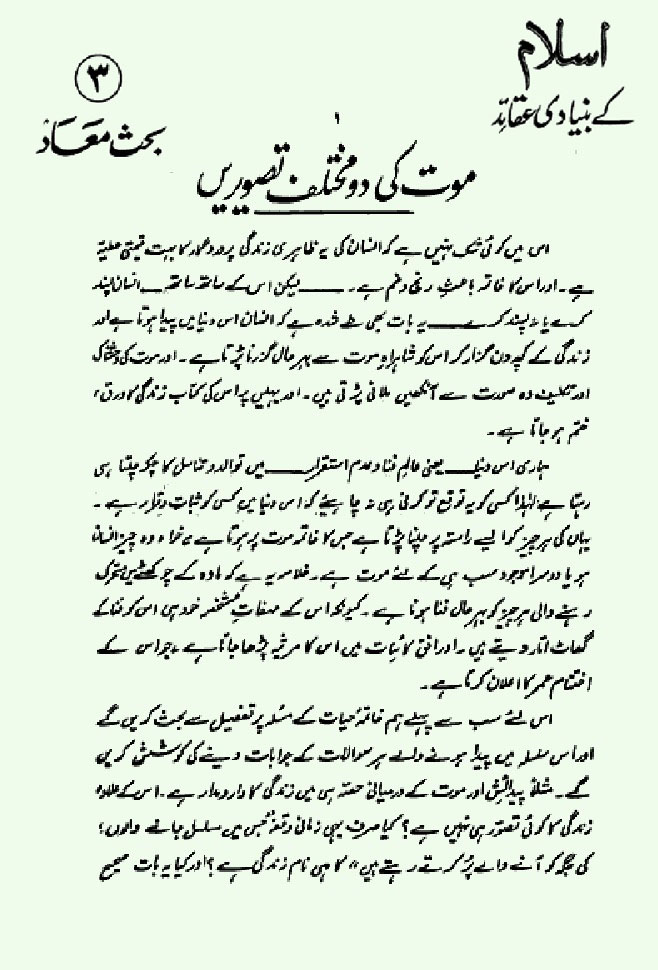 اسلام
کے بنیادی عقائد
۳
بحث معاد
۱
موت کی دو مختلف تصویریں
اس میں کوئی شک نہیں ہے کہ انسان کی یہ ظاہری زندگی پروردگار کا بہت قیمتی عطیہ
ہے۔ اور اس کا خاتمہ باعثِ رنج و غم ہے۔ ــــــ لیکن اس کے ساتھ ساتھ ــ انسان پسند
کرے یا نہ پسند کرے ــــــ یہ بات بھی طے شدہ ہے کہ انسان اس دنیا میں پیدا ہوتا ہے اور
زندگی کے کچھ دن گزار کر اس کو شاہراہِ موت سے بہرحال گزرنا پڑتا ہے۔ اور موت کی
اور تکلیف دہ صورت سے آنکھیں ملانی پڑتی ہیں۔ اور یہیں پر اس کی کتاب زندگی کا ورق،
ختم ہو جاتا ہے۔
ہماری اس دنیا ــــ یعنی عالم فنا و عدم استقرار ــــــ میں توالد و تناسل کا چکر چلتا ہی
رہتا ہے لہٰذا کسی کو یہ توقع تو کرنی ہی نہ چاہیئے کہ اس دنیا میں کسی کو ثبات و قرار ہے۔
یہاں کی ہر چیز کو ایسے راستہ پر چلنا پڑتا ہے جس کا خاتمہ موت پر ہوتا ہے خواہ وہ چیز انسان
ہو یا دوسرا موجود سب ہی کے لئے موت ہے۔ خلاصہ یہ ہے کہ مادہ کے چوکھٹے میں متحرک
رہنے والی ہر چیز کو بہرحال فنا ہونا ہے۔ کیونکہ اس کے صفاتِ خود ہی اس کو فنا کے
گھاٹ اتار دیتے ہیں۔ اور افق کائنات میں اس کا مرثیہ پڑھا جاتا ہے جو اس کے
اختتام عمر کا اعلان کرتا ہے۔
اس لئے سب سے پہلے ہم خاتمۂ حیات کے مسئلہ پر تفصیل سے بحث کریں گے
اور اس سلسلہ میں پیدا ہونے والے ہر سوالات کے جوابات دینے کی کوشش کریں
گے۔ مثلاً پیدائش اور موت کے درمیانی حصہ ہی میں زندگی کا دارومدار ہے۔ اس کے علاوہ
زندگی کا کوئی تصور ہی نہیں ہے؟ کیا صرف یہی زمانی وقفہ جس میں مسلسل جانے والوں،
کی جگہ کو آنے والے پُر کرتے رہتے ہیں" کا ہی نام زندگی ہے؟ اور کیا یہ بات صحیح